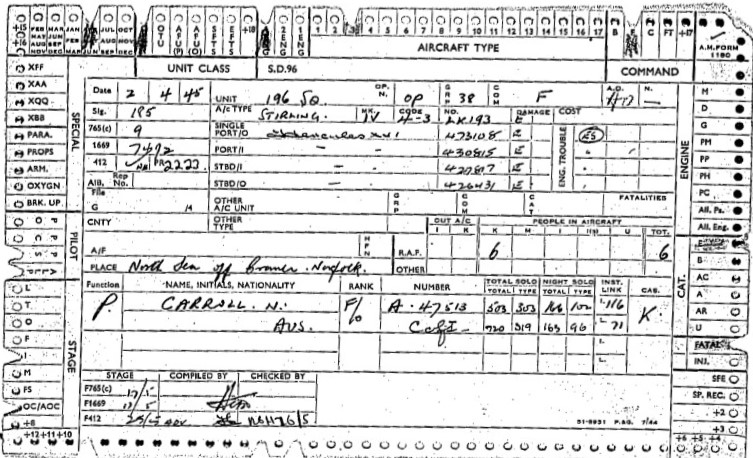 +15 FEB MAR JAN JUL OCT OTU AFU(P) AFU(O) SFTS EFTS +18 2ENG 1ENG 1 2 3 4 5 6 7 8 9 10 11 12 13 14 15 16 17 B E C FT +17
MAY JUN AUG NOV DEC
+16 AUG SEP
NOV DEC MAR JUN SEP DEC
AIRCRAFT TYPE
A.M. FORM 1180
XFF UNIT CLASS S.D.96 COMMAND
XAA
XQQ
XBB
PARA.
PROPS
ARM.
OXYGN
BRK. UP.
SPECIAL
Date 2 4 45 UNIT 196 SQ OP. N. OP GRP 38 COM F A.D. N.
Sig. 195 A/c TYPE STIRLING MK. IV CODE 4-3 NO. LK193 DAMAGE E COST
765(c) 9 SINGLE PORT/O Hercules XVI 473108 E ENG. TROUBLE ES
1669 7492 PORT/I 430815 E
412 PR2227 STBD/I 427817 E
AIB. Rep No. STBD/O 426431 E
File G H OTHER A/C UNIT GRP COM CAT FATALITIES
CNTY OTHER TYPE OUT A/C I K PEOPLE IN AIRCRAFT K M I U TOT.
A/F HFN R.A.F. 6 6
PLACE North Sea off Cromer. Norfolk. OTHER
Function NAME, INITIALS, NATIONALITY RANK NUMBER TOTAL SOLO TOTAL TYPE NIGHT SOLO TOTAL TYPE INST. LINK CAS.
P. CARROLL. N. F/O A. 47513 503 303 146 102 L 116 K
AUS. C of I 720 319 163 96 L 71
STAGE COMPILED BY CHECKED BY
F765(c) 17/5
F1669 17/5
F412
51-8951 P.BG. 7/44
PILOT
STAGE
L
T
O
F
I
M
FS
OC/AOC
+8
+12 +11 +10
ENGINE
M
D
G
PP
PH
PC
All. Ps.
All. Eng.
CAT.
B
AC
A
AR
U
FATAL
INJ.
SFE
SP. REC.
+2
+3
+6 +5 +4